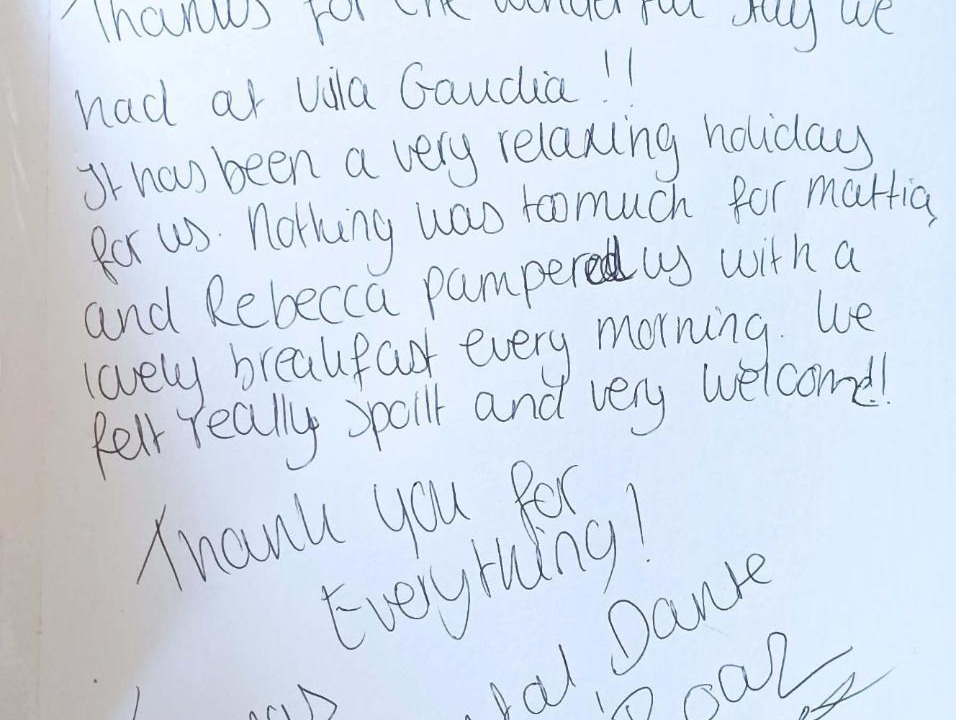 Thanks for the wonderful stay we
had at Villa Gaudia!!
It has been a very relaxing holiday
for us. Nothing was too much for Mattia,
and Rebecca pampered us with a
lovely breakfast every morning. We
felt really spoilt and very welcomed!!
Thank you for
Everything!
Dante
Boaz